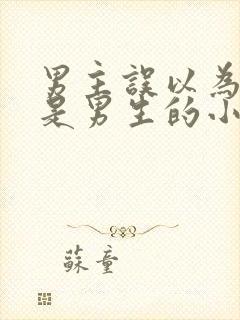 男主誤以為
是男生的小
蘇童